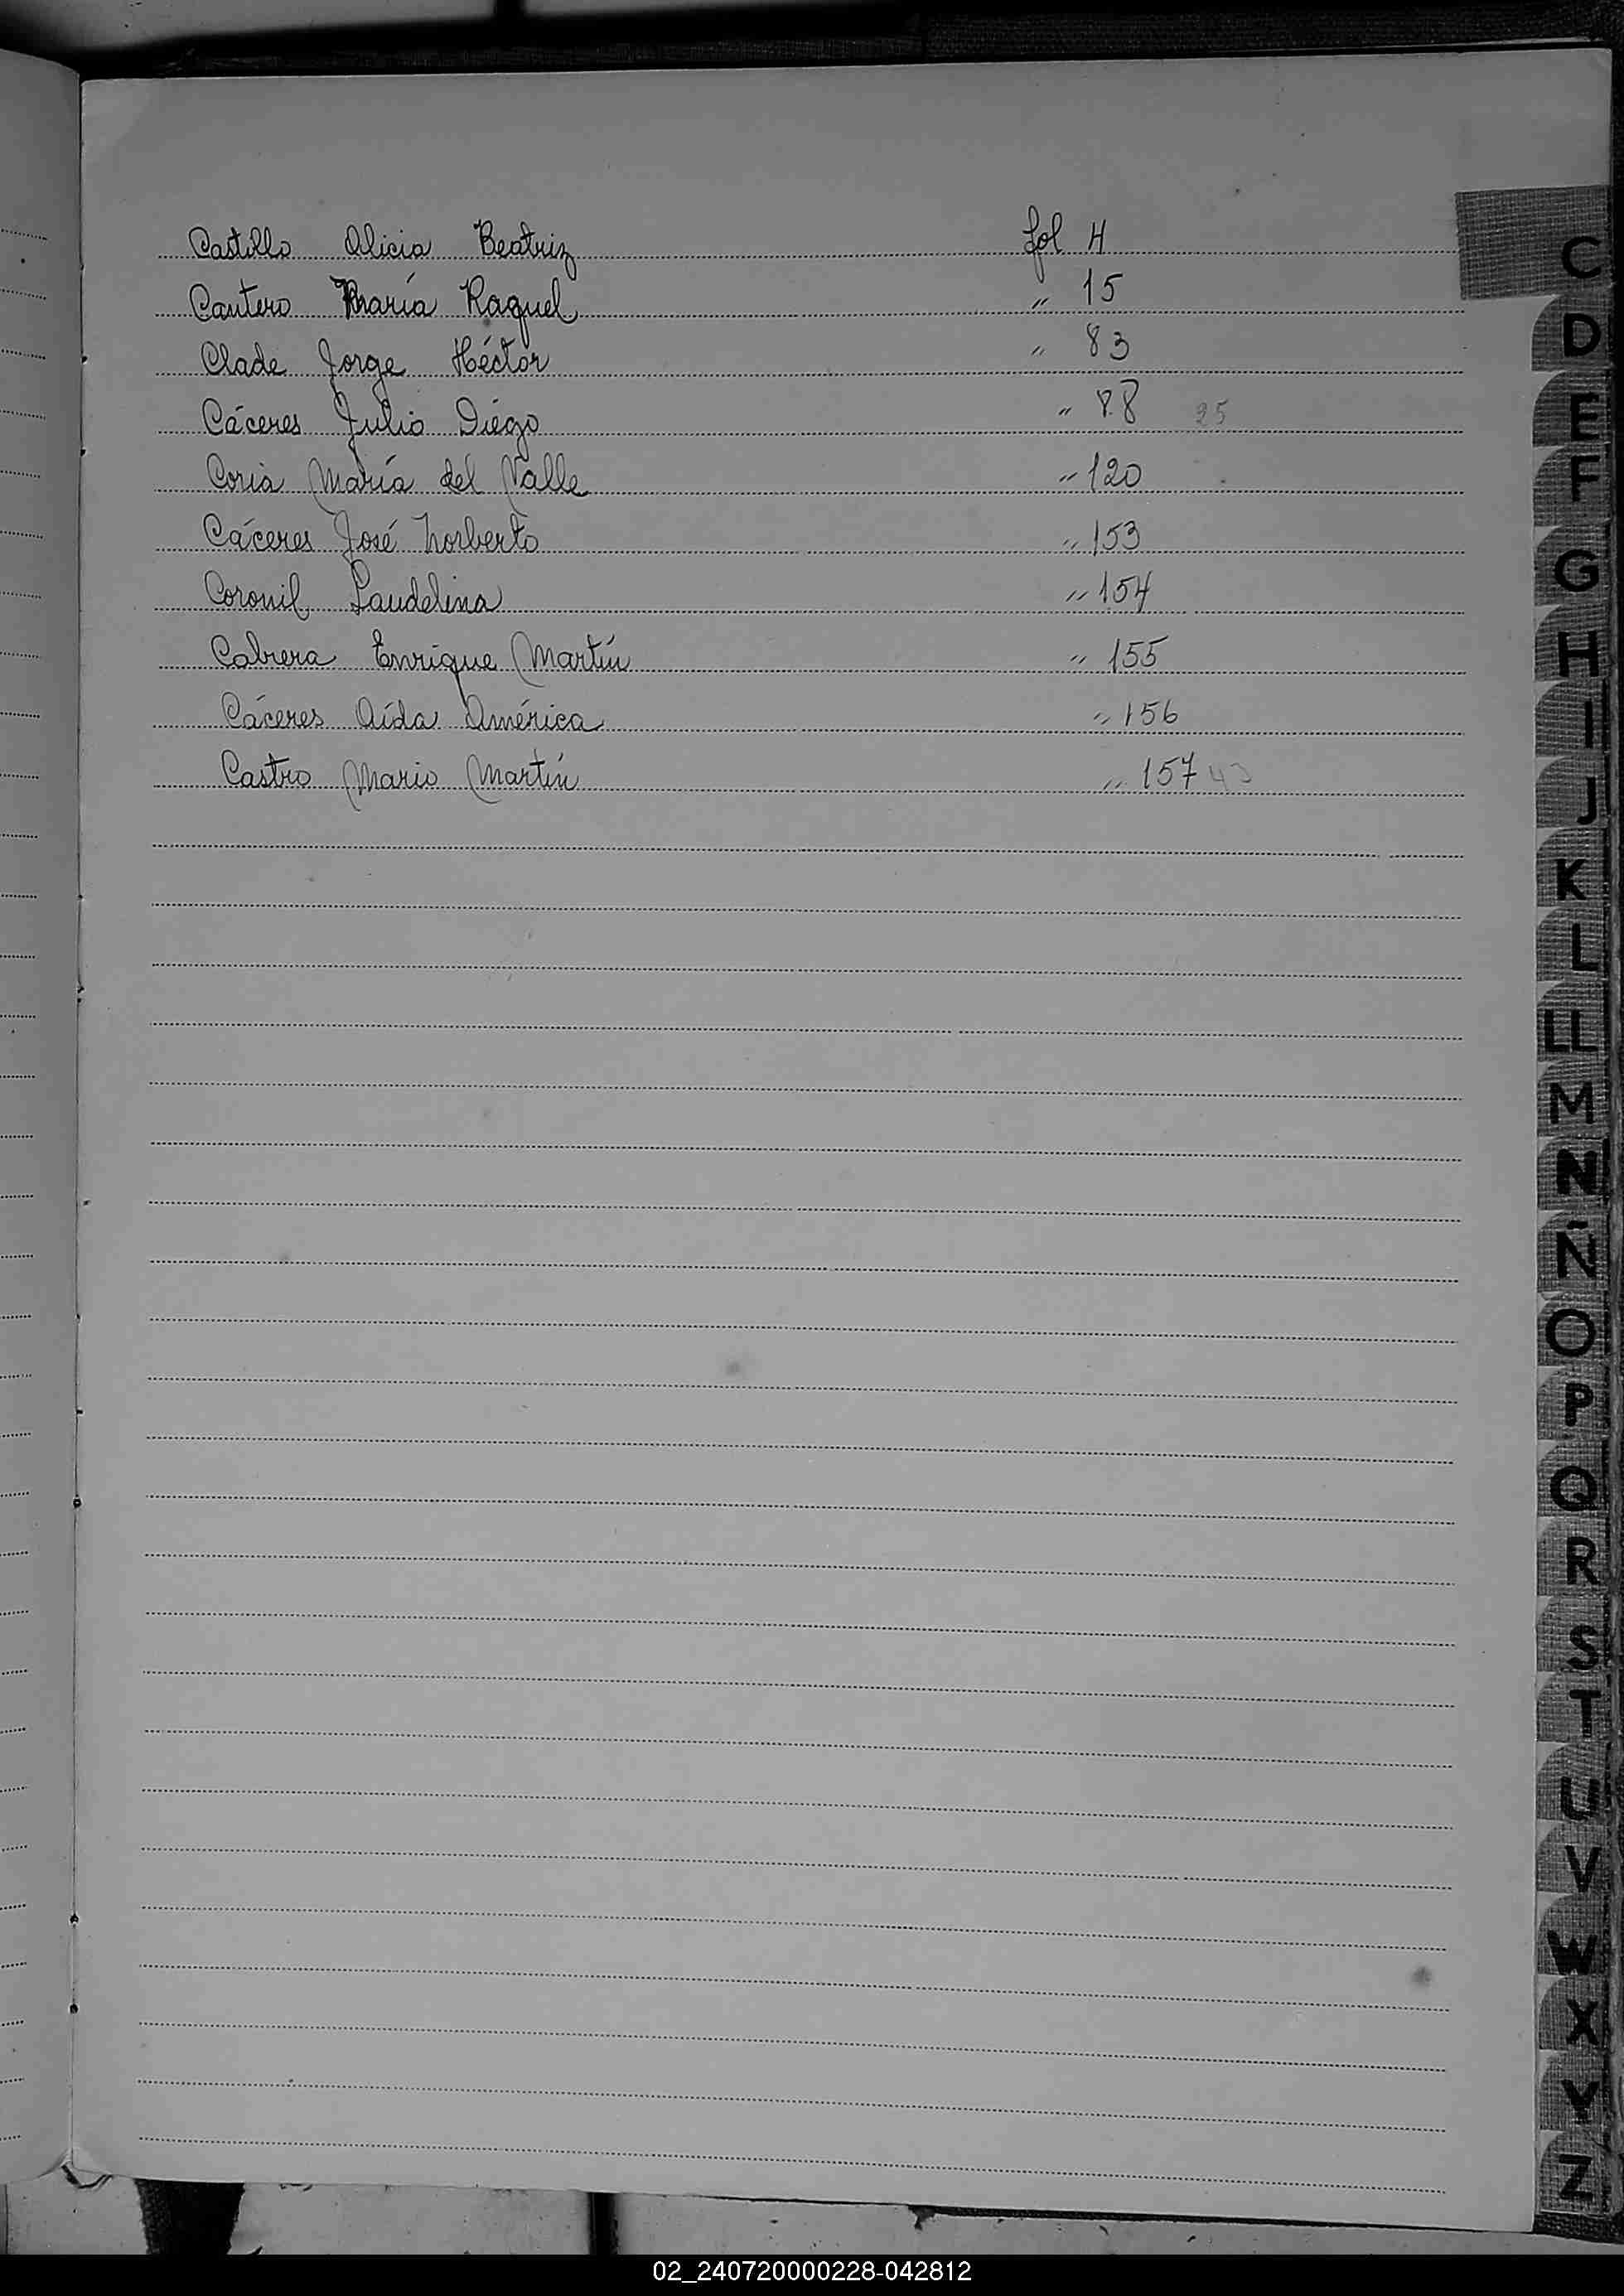 Castillo Alicia Beatriz fol 4
Cantero María Raquel " 15
Clade Jorge Héctor " 83
Cáceres Julio Diego " 88 25
Coria María del Valle " 120
Cáceres José Norberto " 153
Coronil Laudelina " 154
Cabrera Enrique Martín " 155
Cáceres Aída América " 156
Castro Mario Martín " 157 43
C
D
E
F
G
H
I
J
K
L
LL
M
N
Ñ
O
P
Q
R
S
T
U
V
W
X
Y
Z
02_240720000228-042812